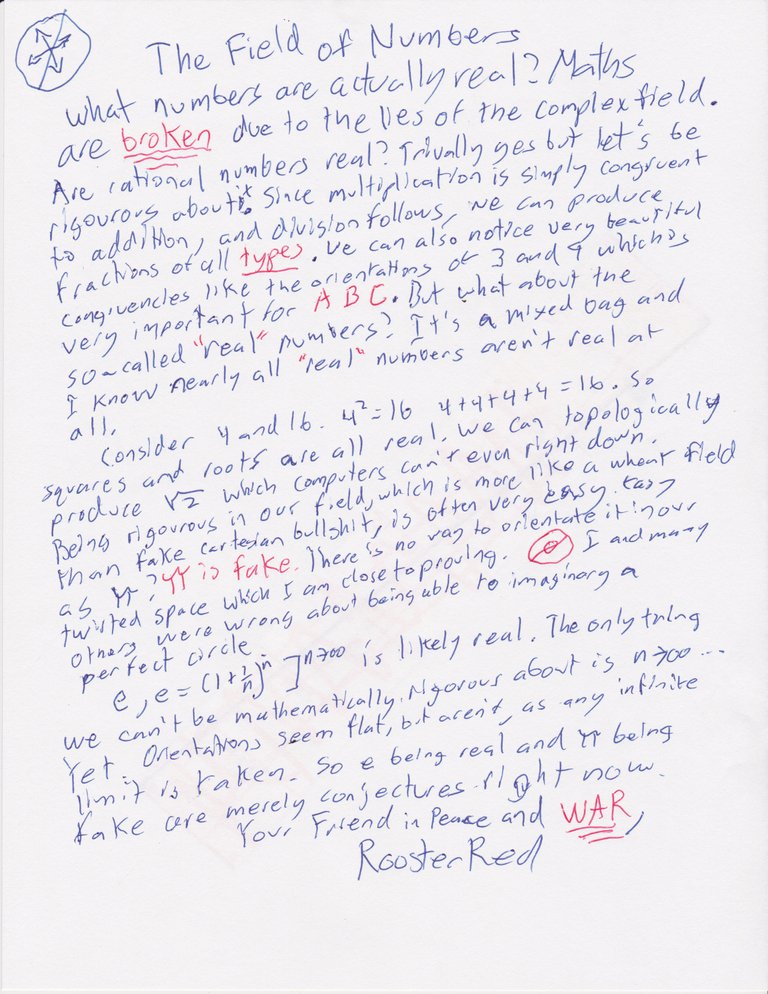 The Field of Numbers
What numbers are actually real? Maths
are broken due to the lies of the complex field.
Are rational numbers real? Trivally yes but let's be
rigourous about it. Since multiplication is simply congruent
to addition, and division follows, we can produce
fractions of all types. We can also notice very beautiful
congruencies like the orientations of 3 and 9 which is
very important for A B C. But what about the
so-called "real" numbers? It's a mixed bag and
I know nearly all "real" numbers aren't real at
all.
Consider 4 and 16. 4² = 16 4+4+4+4 = 16. So
squares and roots are all real. We can topologically
produce √2 which computers can't even right down.
Being rigourous in our field, which is more like a wheat field
than fake cartesian bullshit, is often very easy. Easy
as π? π is fake. There is no way to orientate it in our
twisted space which I am close to proving. I and many
others were wrong about being able to imaginary a
perfect circle
e, e = (1+1/n)^n ]^n→∞ is likely real. The only thing
we can't be mathematically rigorous about is n→∞ ...
Yet. Orientations seem flat, but aren't, as any infinite
limit is taken. So e being real and π being
fake are merely conjectures right now.
Your Friend in Peace and WAR,
RoosterRed